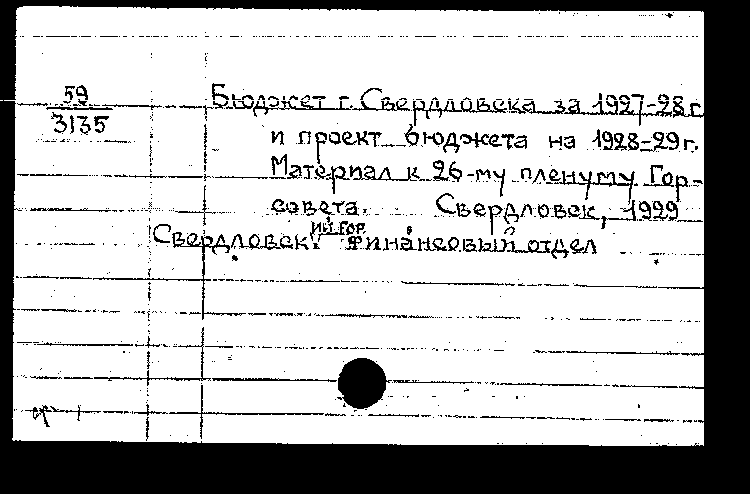 59
3135
Бюджет г. Свердловска за 1927-28 г.
и проект бюджета на 1928-29 г.
Материал к 26-му пленуму Гор-
совета. Свердловск, 1929
Свердловск. ий гор. финансовый отдел